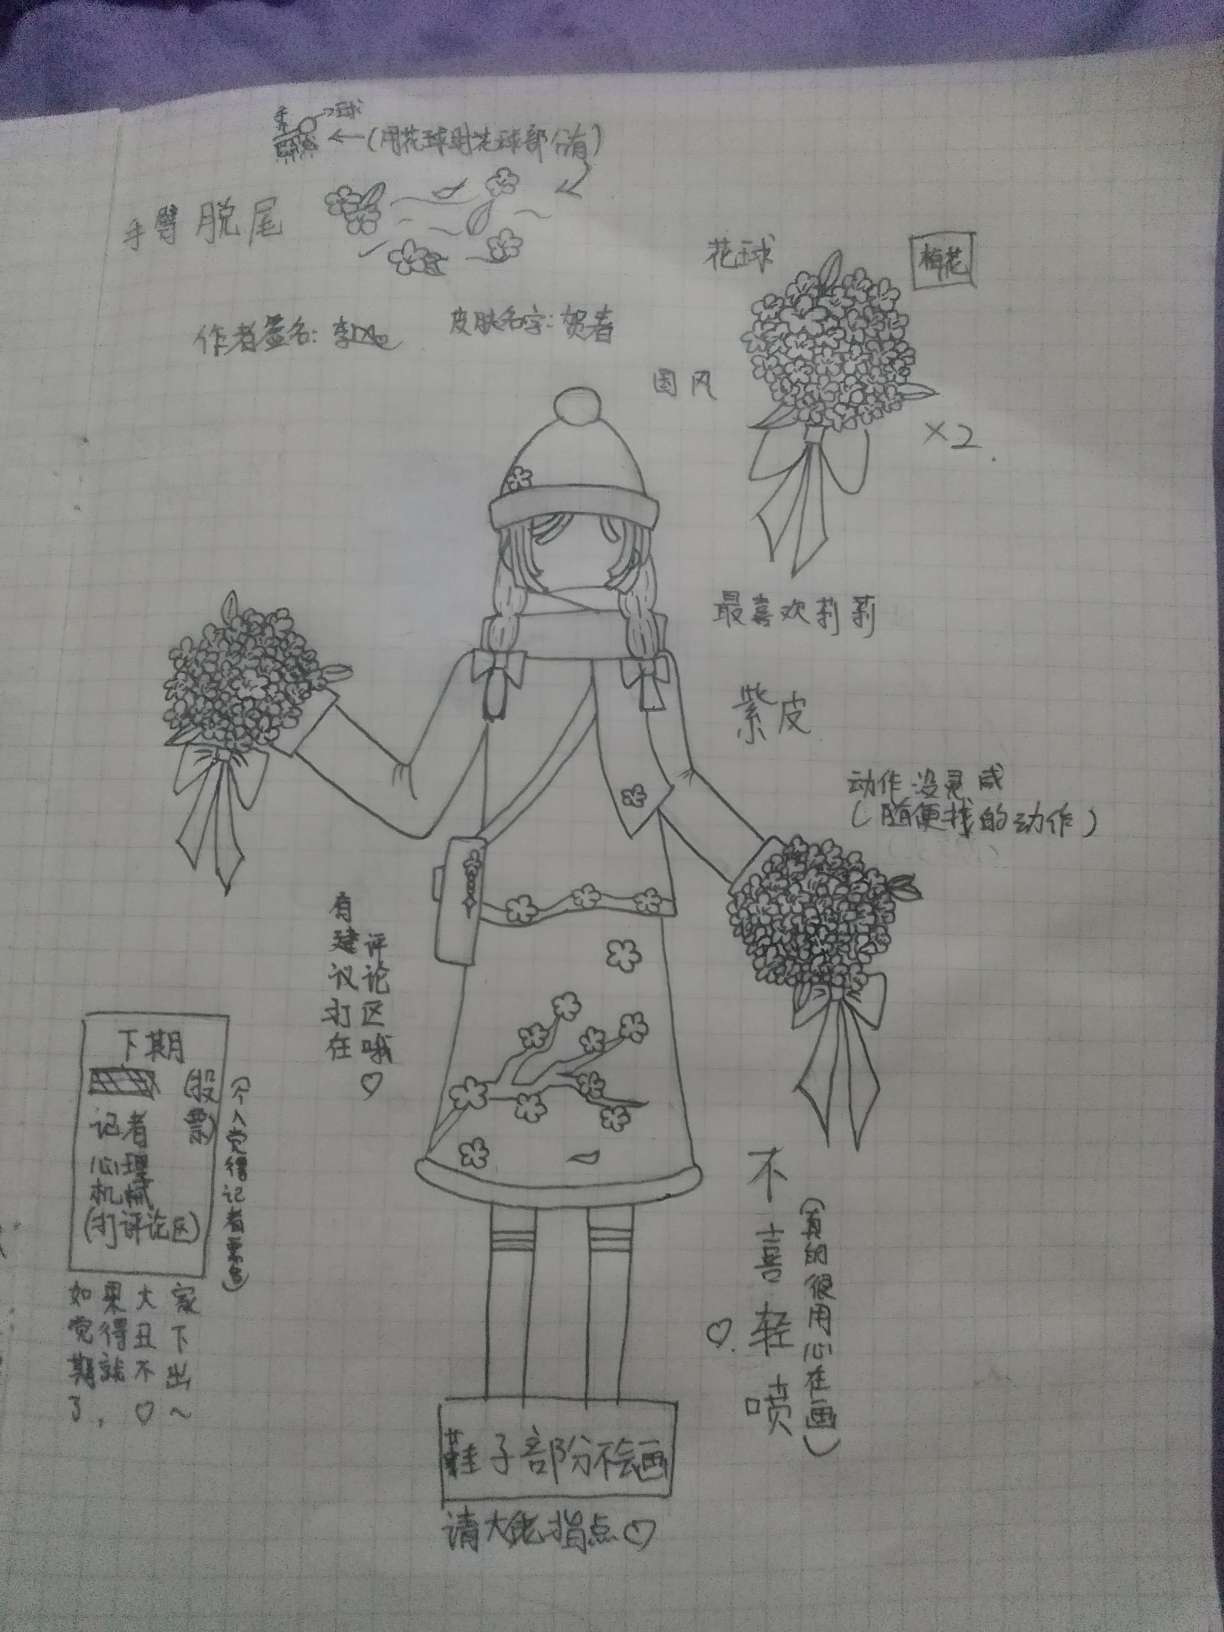 球
手
(用花球时花球部分有)
手臂脱尾
花球
梅花
作者签名:李
皮肤名字:贺春
国风
×2
最喜欢莉莉
紫皮
动作没灵感
(随便找的动作)
有建议打在
评论区哦♡
下期
(投票)
记者
心理
机械
(打评论区)
(个人觉得记者票多)
如果大家
觉得丑下
期就不出
了,♡~
不喜轻喷
♡
(真的很用心在画)
鞋子部分不会画
请大佬指点♡